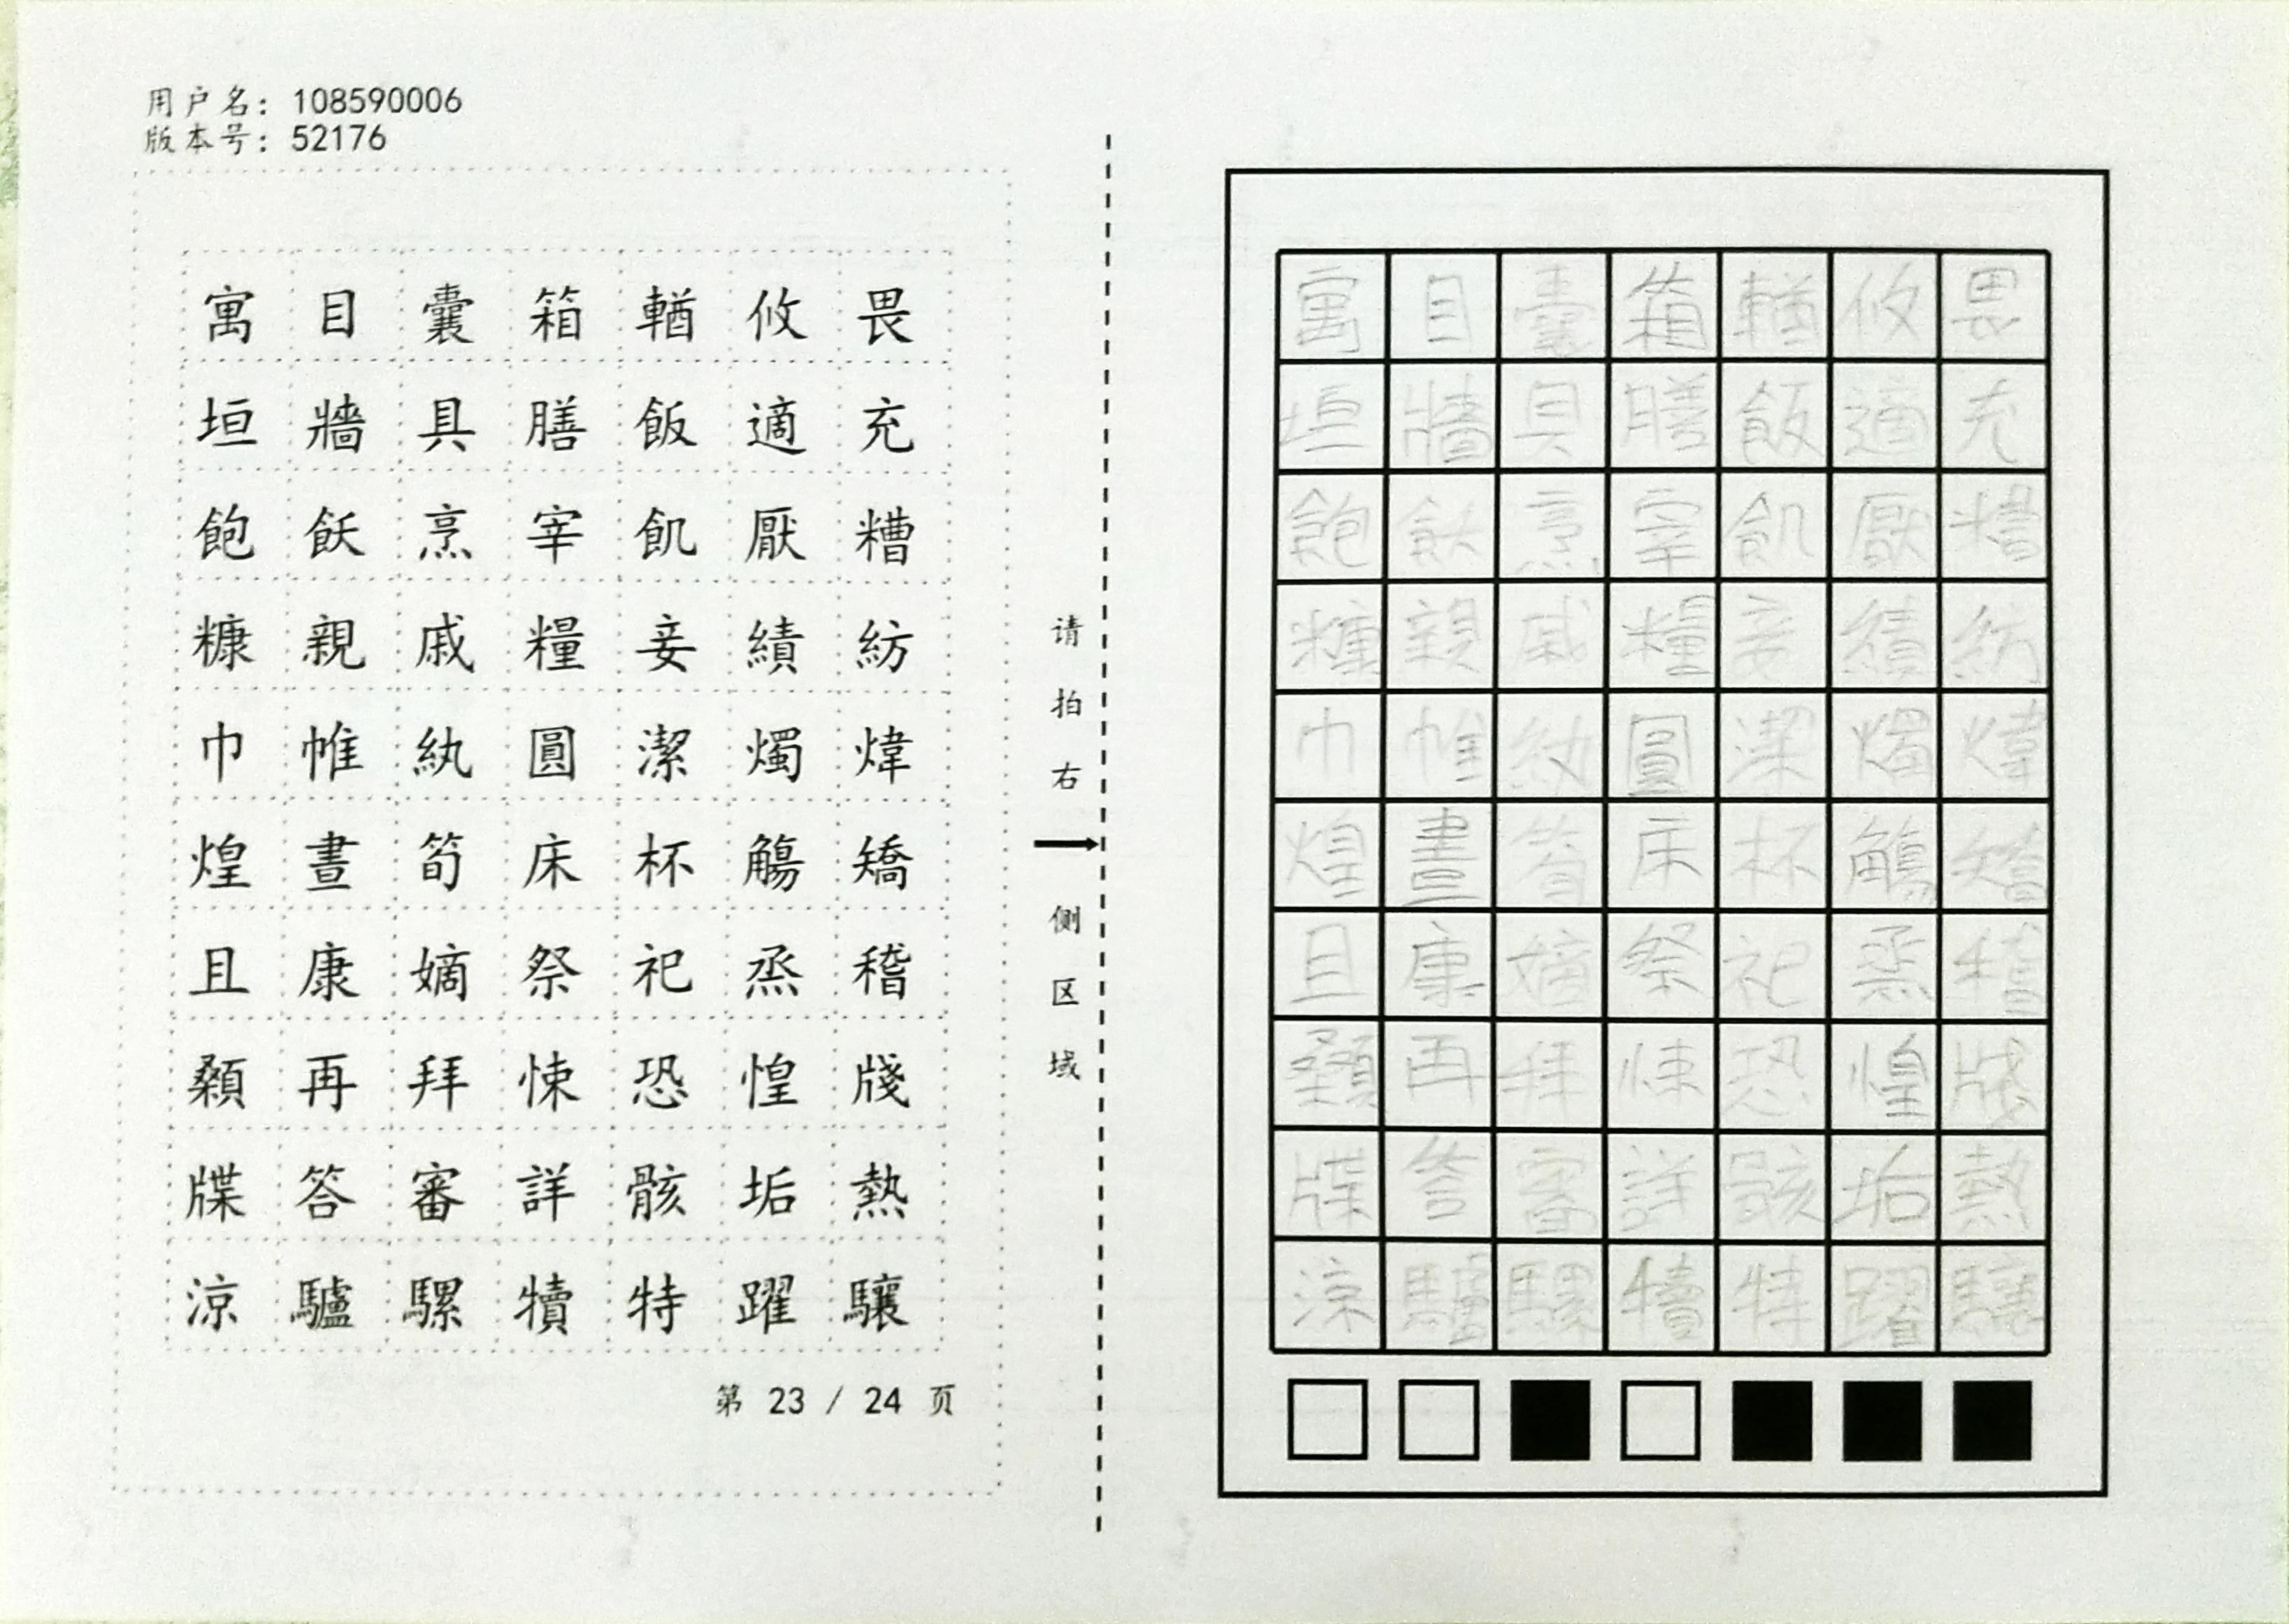 用户名: 108590006
版本号: 52176
寓目囊箱輶攸畏
垣牆具膳飯適充
飽飫烹宰飢厭糟
糠親戚糧妾績紡
巾帷紈圓潔燭煒
煌晝筍床杯觴矯
且康嫡祭祀烝稽
顙再拜悚恐惶牋
牒答審詳骸垢熱
涼驢騾犢特躍驤
第 23 / 24 页
请拍右
侧区域
寓目囊箱輶攸畏
垣牆具膳飯適充
飽飫烹宰飢厭糟
糠親戚糧妾績紡
巾帷紈圓潔燭煒
煌晝筍床杯觴矯
且康嫡祭祀烝稽
顙再拜悚恐惶牋
牒答審詳骸垢熱
涼驢騾犢特躍驤